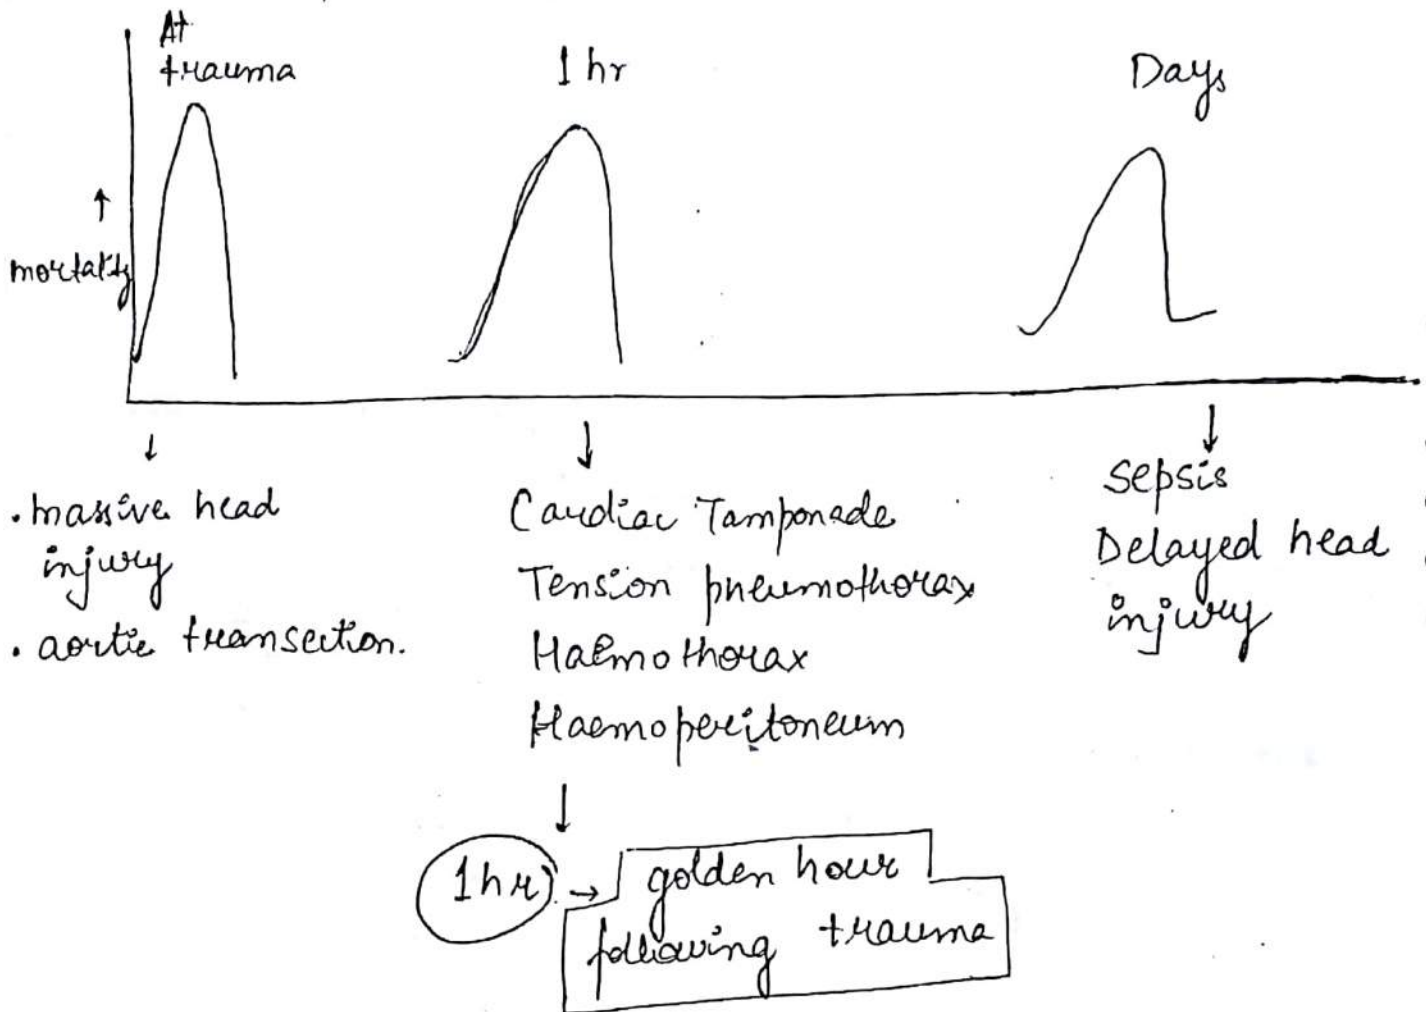 At
trauma
1 hr
Days
↑
mortality
↓
• massive head
injury
• aortic transection.
↓
Cardiac Tamponade
Tension pneumothorax
Haemothorax
Haemoperitoneum
↓
Sepsis
Delayed head
injury
↓
1hr → golden hour
following trauma